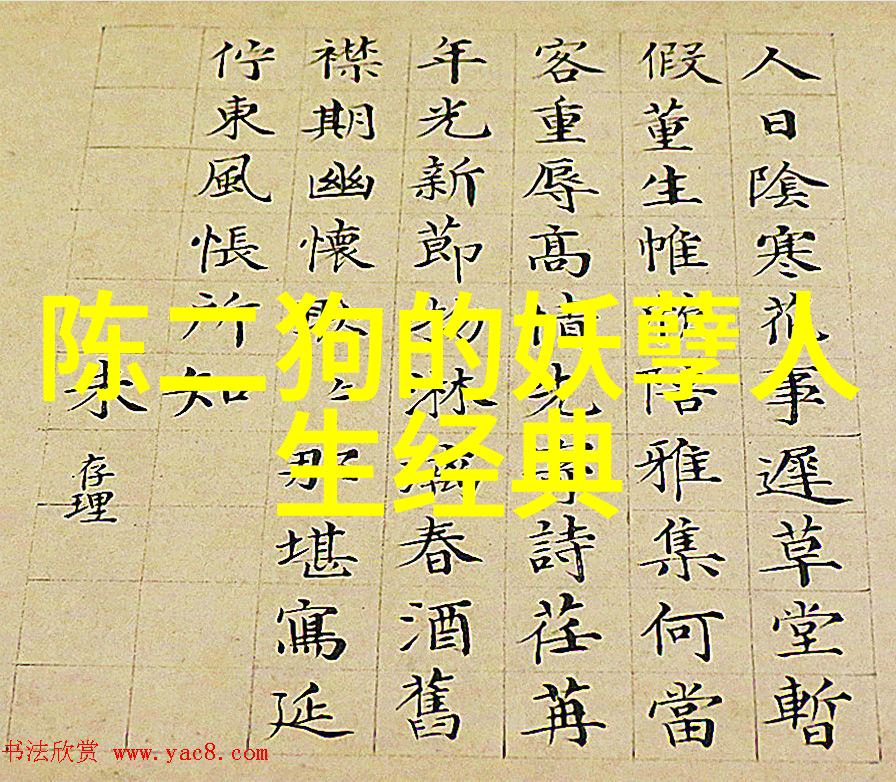 人日陰寒花事遲草堂暫
假董生帷陪雅集何當
客重辱高情先詩荏苒
年光新節物淋漓春酒舊
襟期幽懷那堪寫延
佇東風悵所知
未
存理
陈二狗的妖孽人
生经典
书法欣赏 www.yac8.com